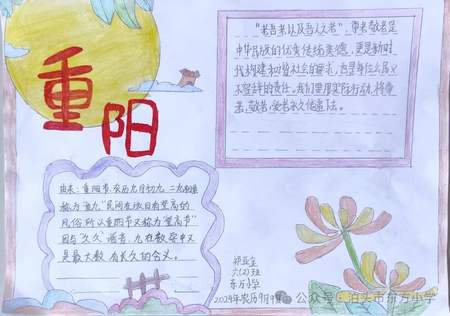 重阳
"老吾老以及吾人之老",尊老敬老是
中华民族的优良传统美德,更是新时
代构建和谐社会的要求,也是每位公民义
不容辞的责任。我们要用实际行动,将尊
老、敬老、爱老永久传递下去。
由来:重阳节,农历九月初九,二九相重
称为"重九"民间在该日有登高的
风俗,所以重阳节又称为"登高节"
因与"久久"谐音,九在数字中又
是最大数,有长久的含义。
郑亚宝
六(2)班
东方小学
2023年农历9月9
公众号:泊头市东方小学